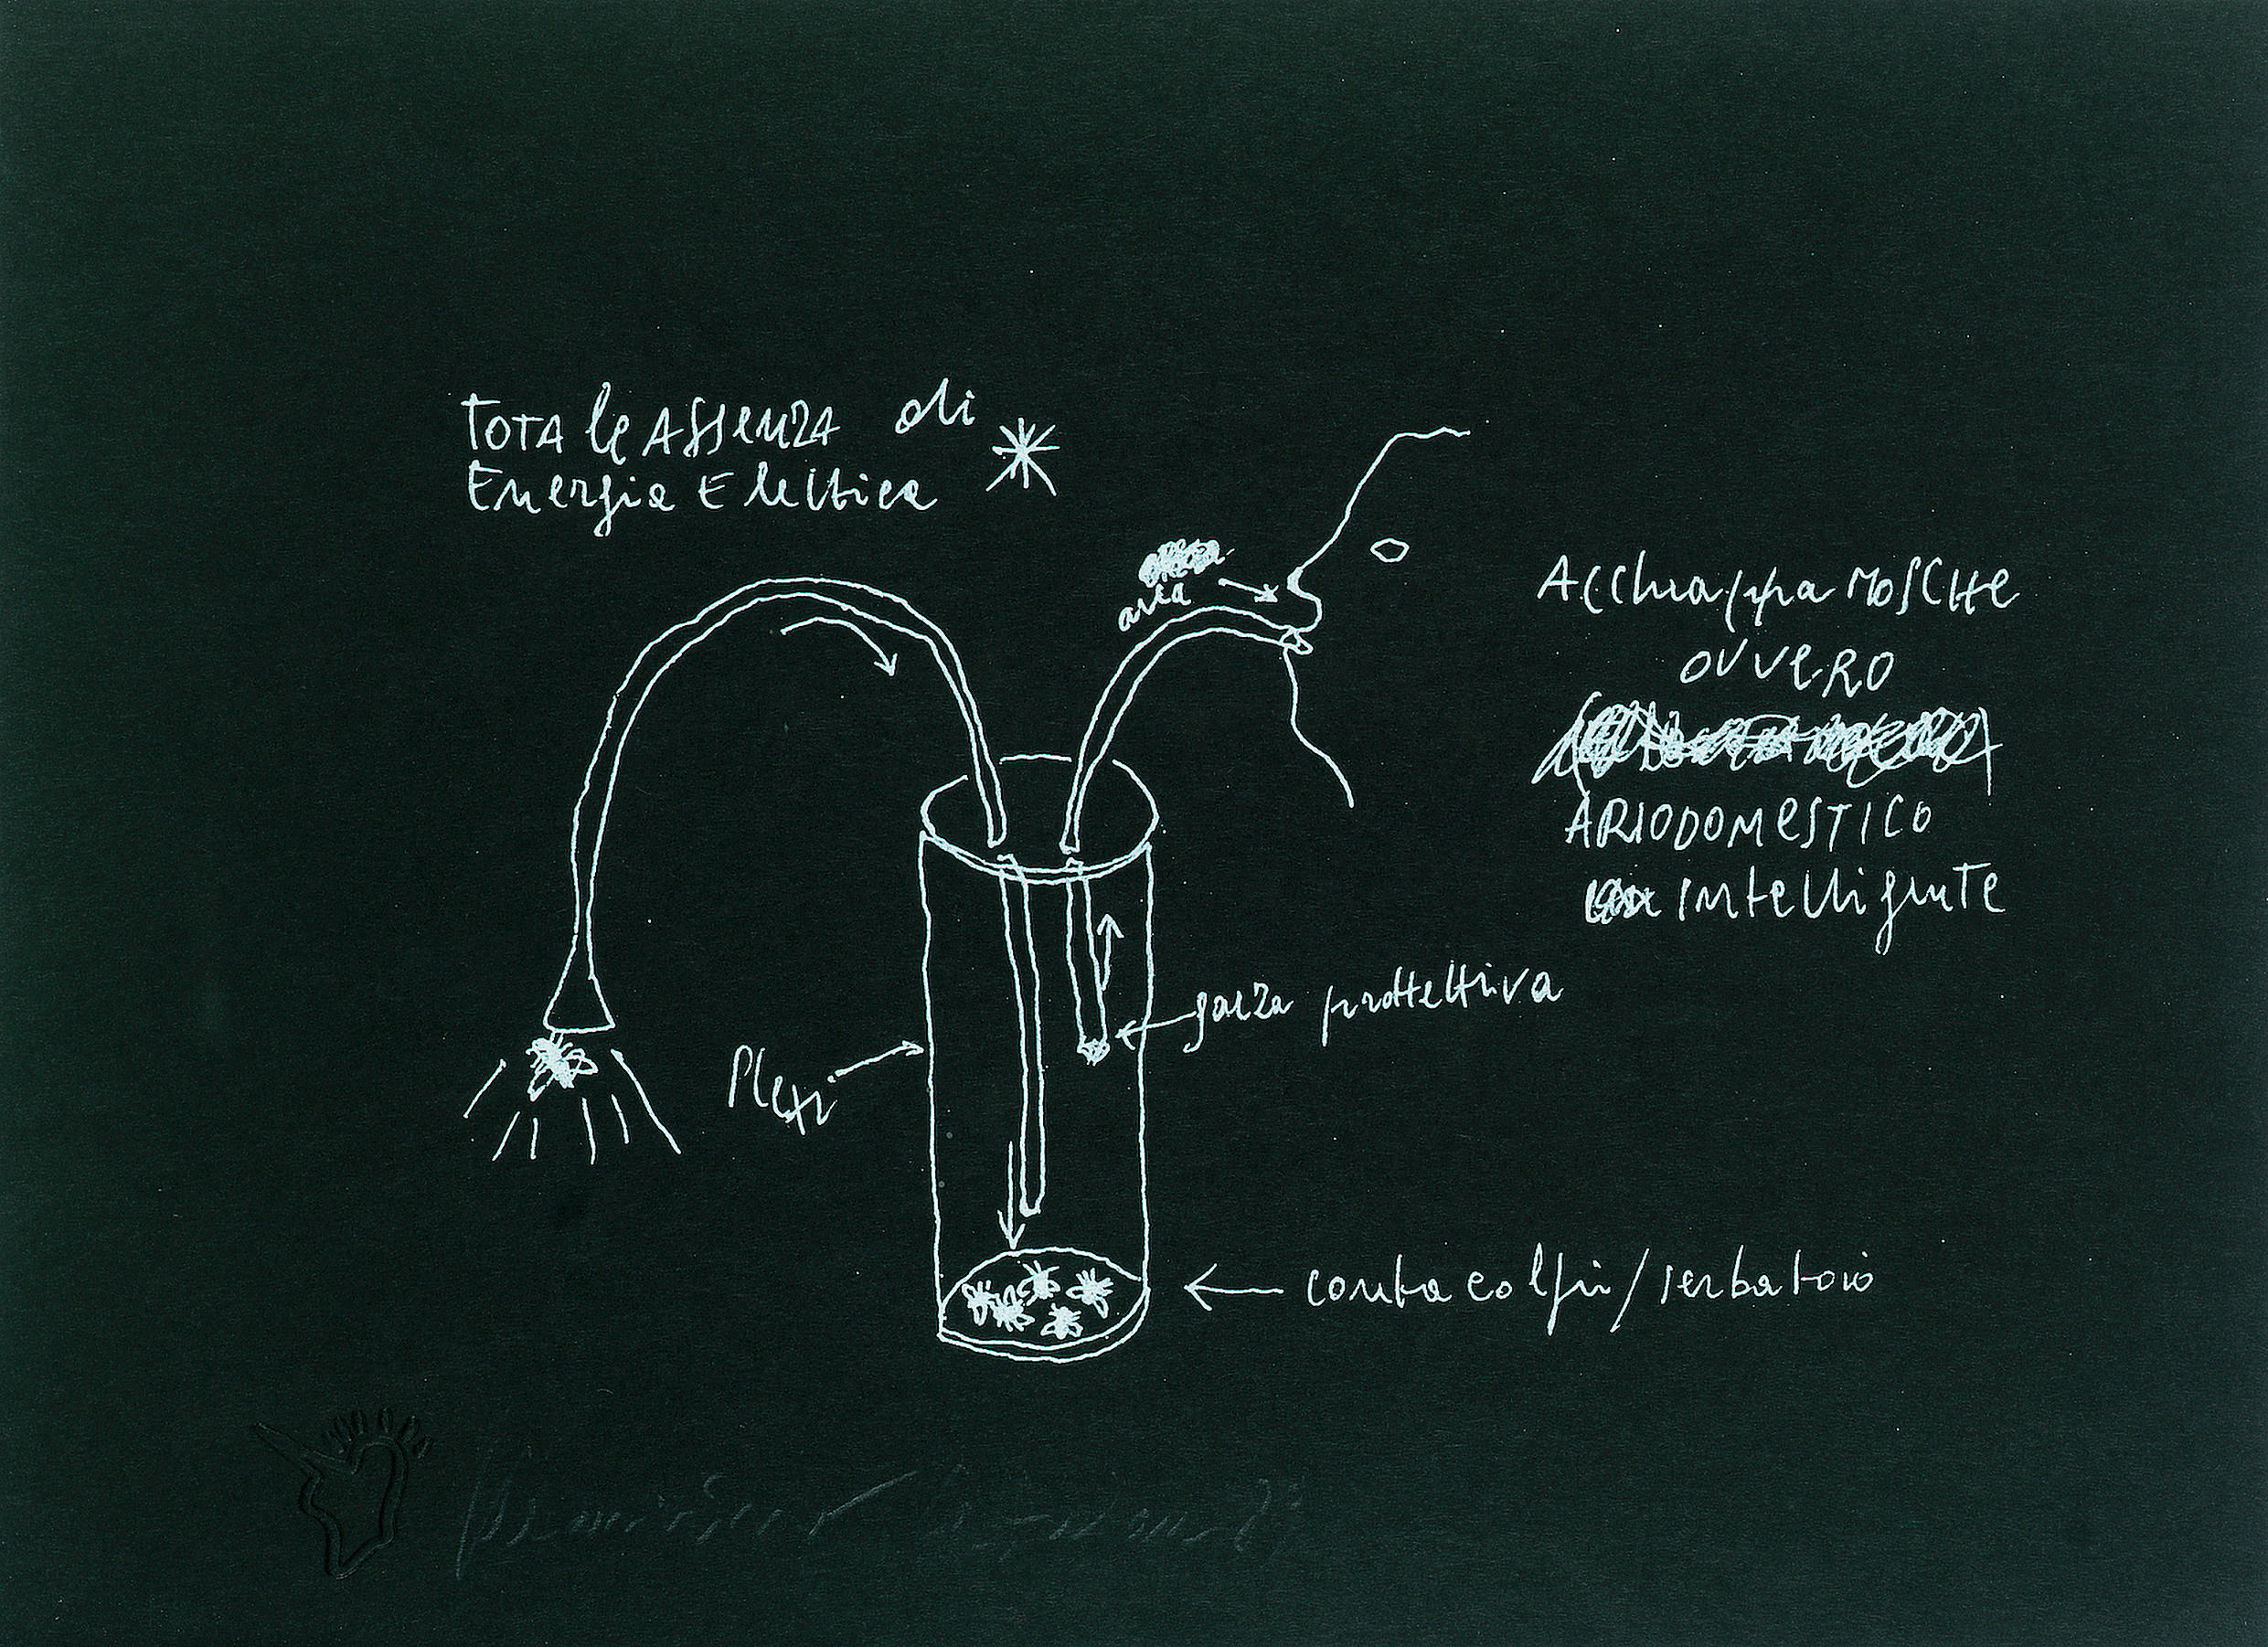 TOTAle ASSENZA di
Energia Elettrica
aria
AcchiappaMOSCHe
OVVeRO
ARIODOMeSTICO
intelligente
garza prottettiva
Plexi
conta colpi/serbatoio